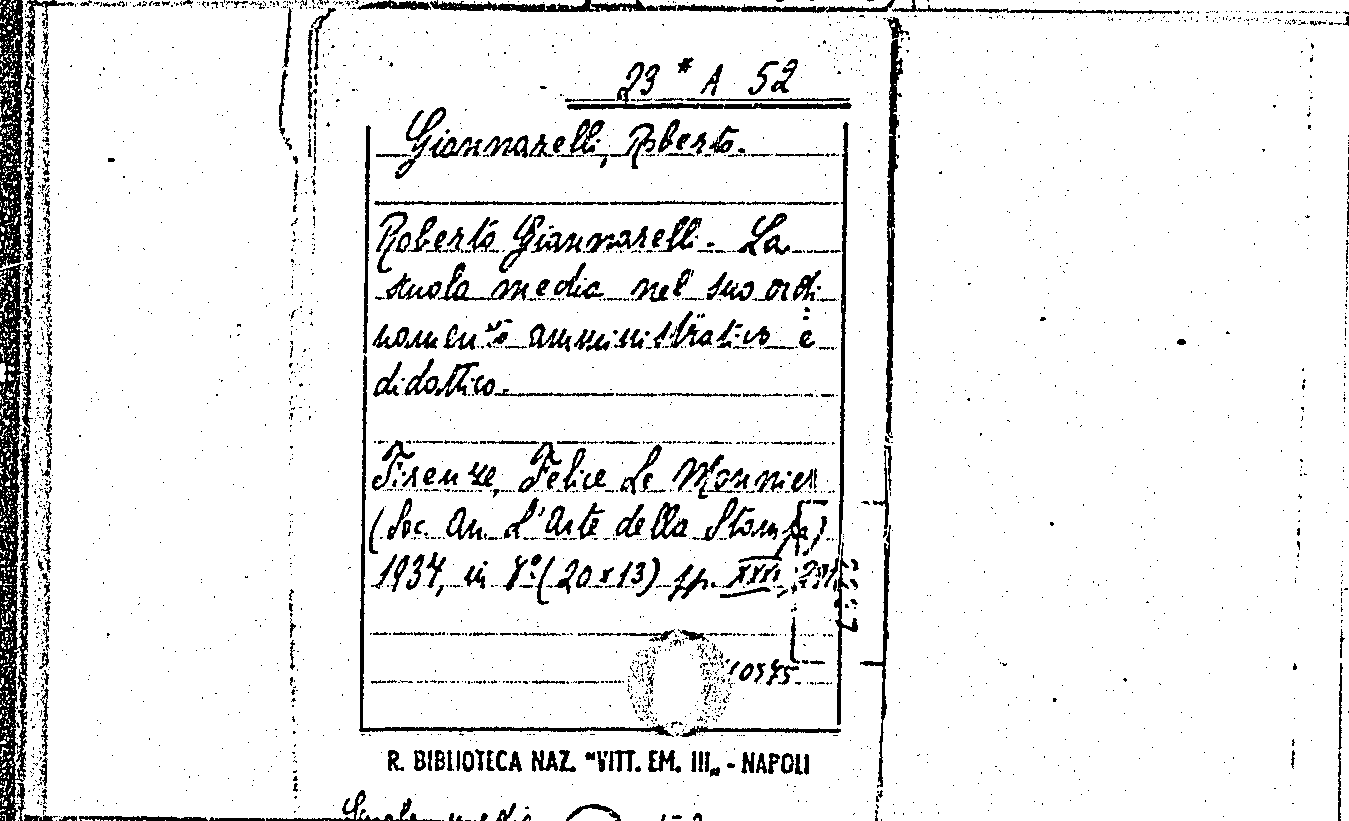 23* A 52
Giannarelli, Roberto.
Roberto Giannarelli. La
scuola media nel suo ordi
namento amministrativo e
didattico.
Firenze, Felice Le Monnier
(Soc. An. L'Arte della Stampa)
1934, in 8°(20x13) pp. XXXI,
10575
R. BIBLIOTECA NAZ. "VITT. EM. III„ - NAPOLI
Scuola media